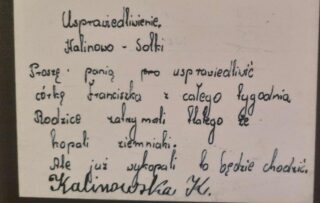 Usprawiedliwienie.
Kalinowo - Sołki
Proszę panią pro usprawiedliwić
córkę Franciszka z całego tygodnia
Rodzice zatrzymali dlatego że
kopali ziemniaki.
Ale już wykopali to będzie chodzić.
Kalinowska K.